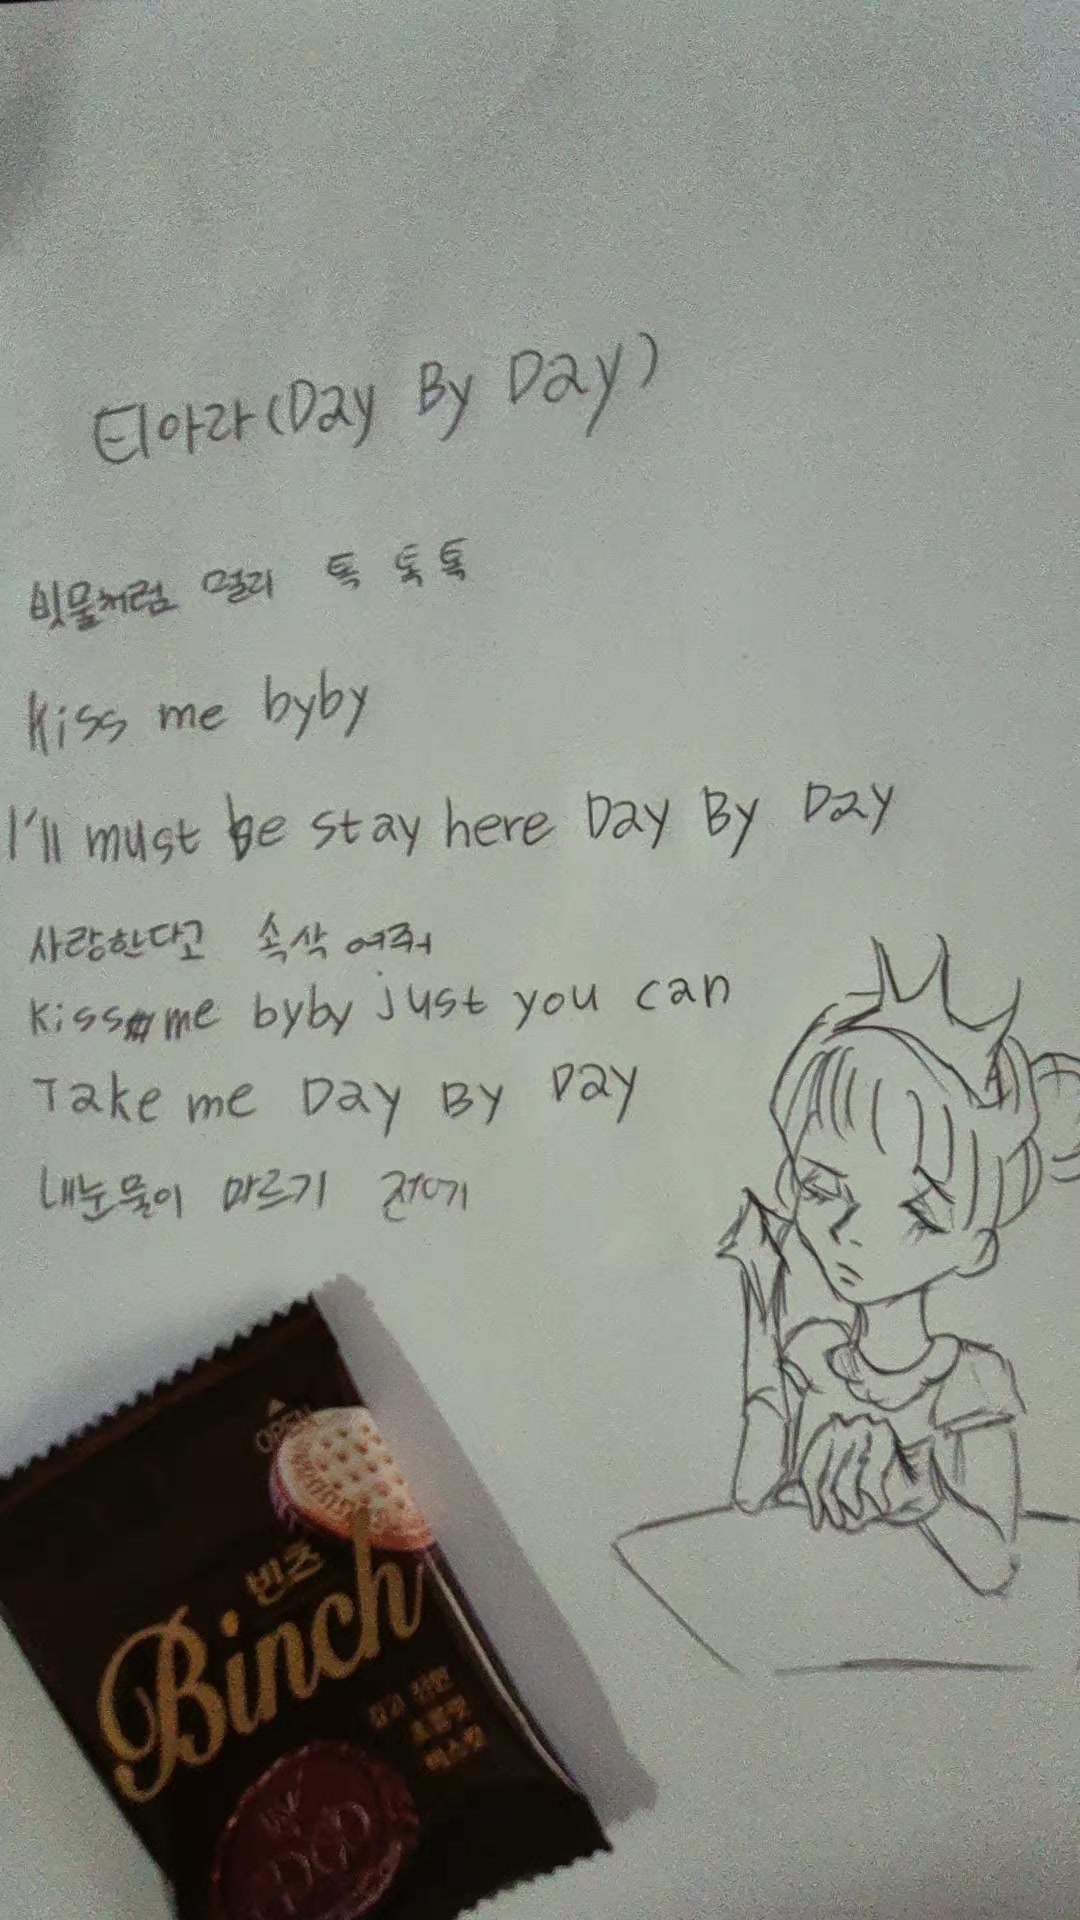 티아라(Day By Day)
빗물처럼 멀리 톡 톡 톡
Kiss me byby
I'll must be stay here Day By Day
사랑한다고 속삭여줘
Kiss me byby just you can
Take me Day By Day
내눈물이 마르기 전에기
OPEN
빈츠
Binch